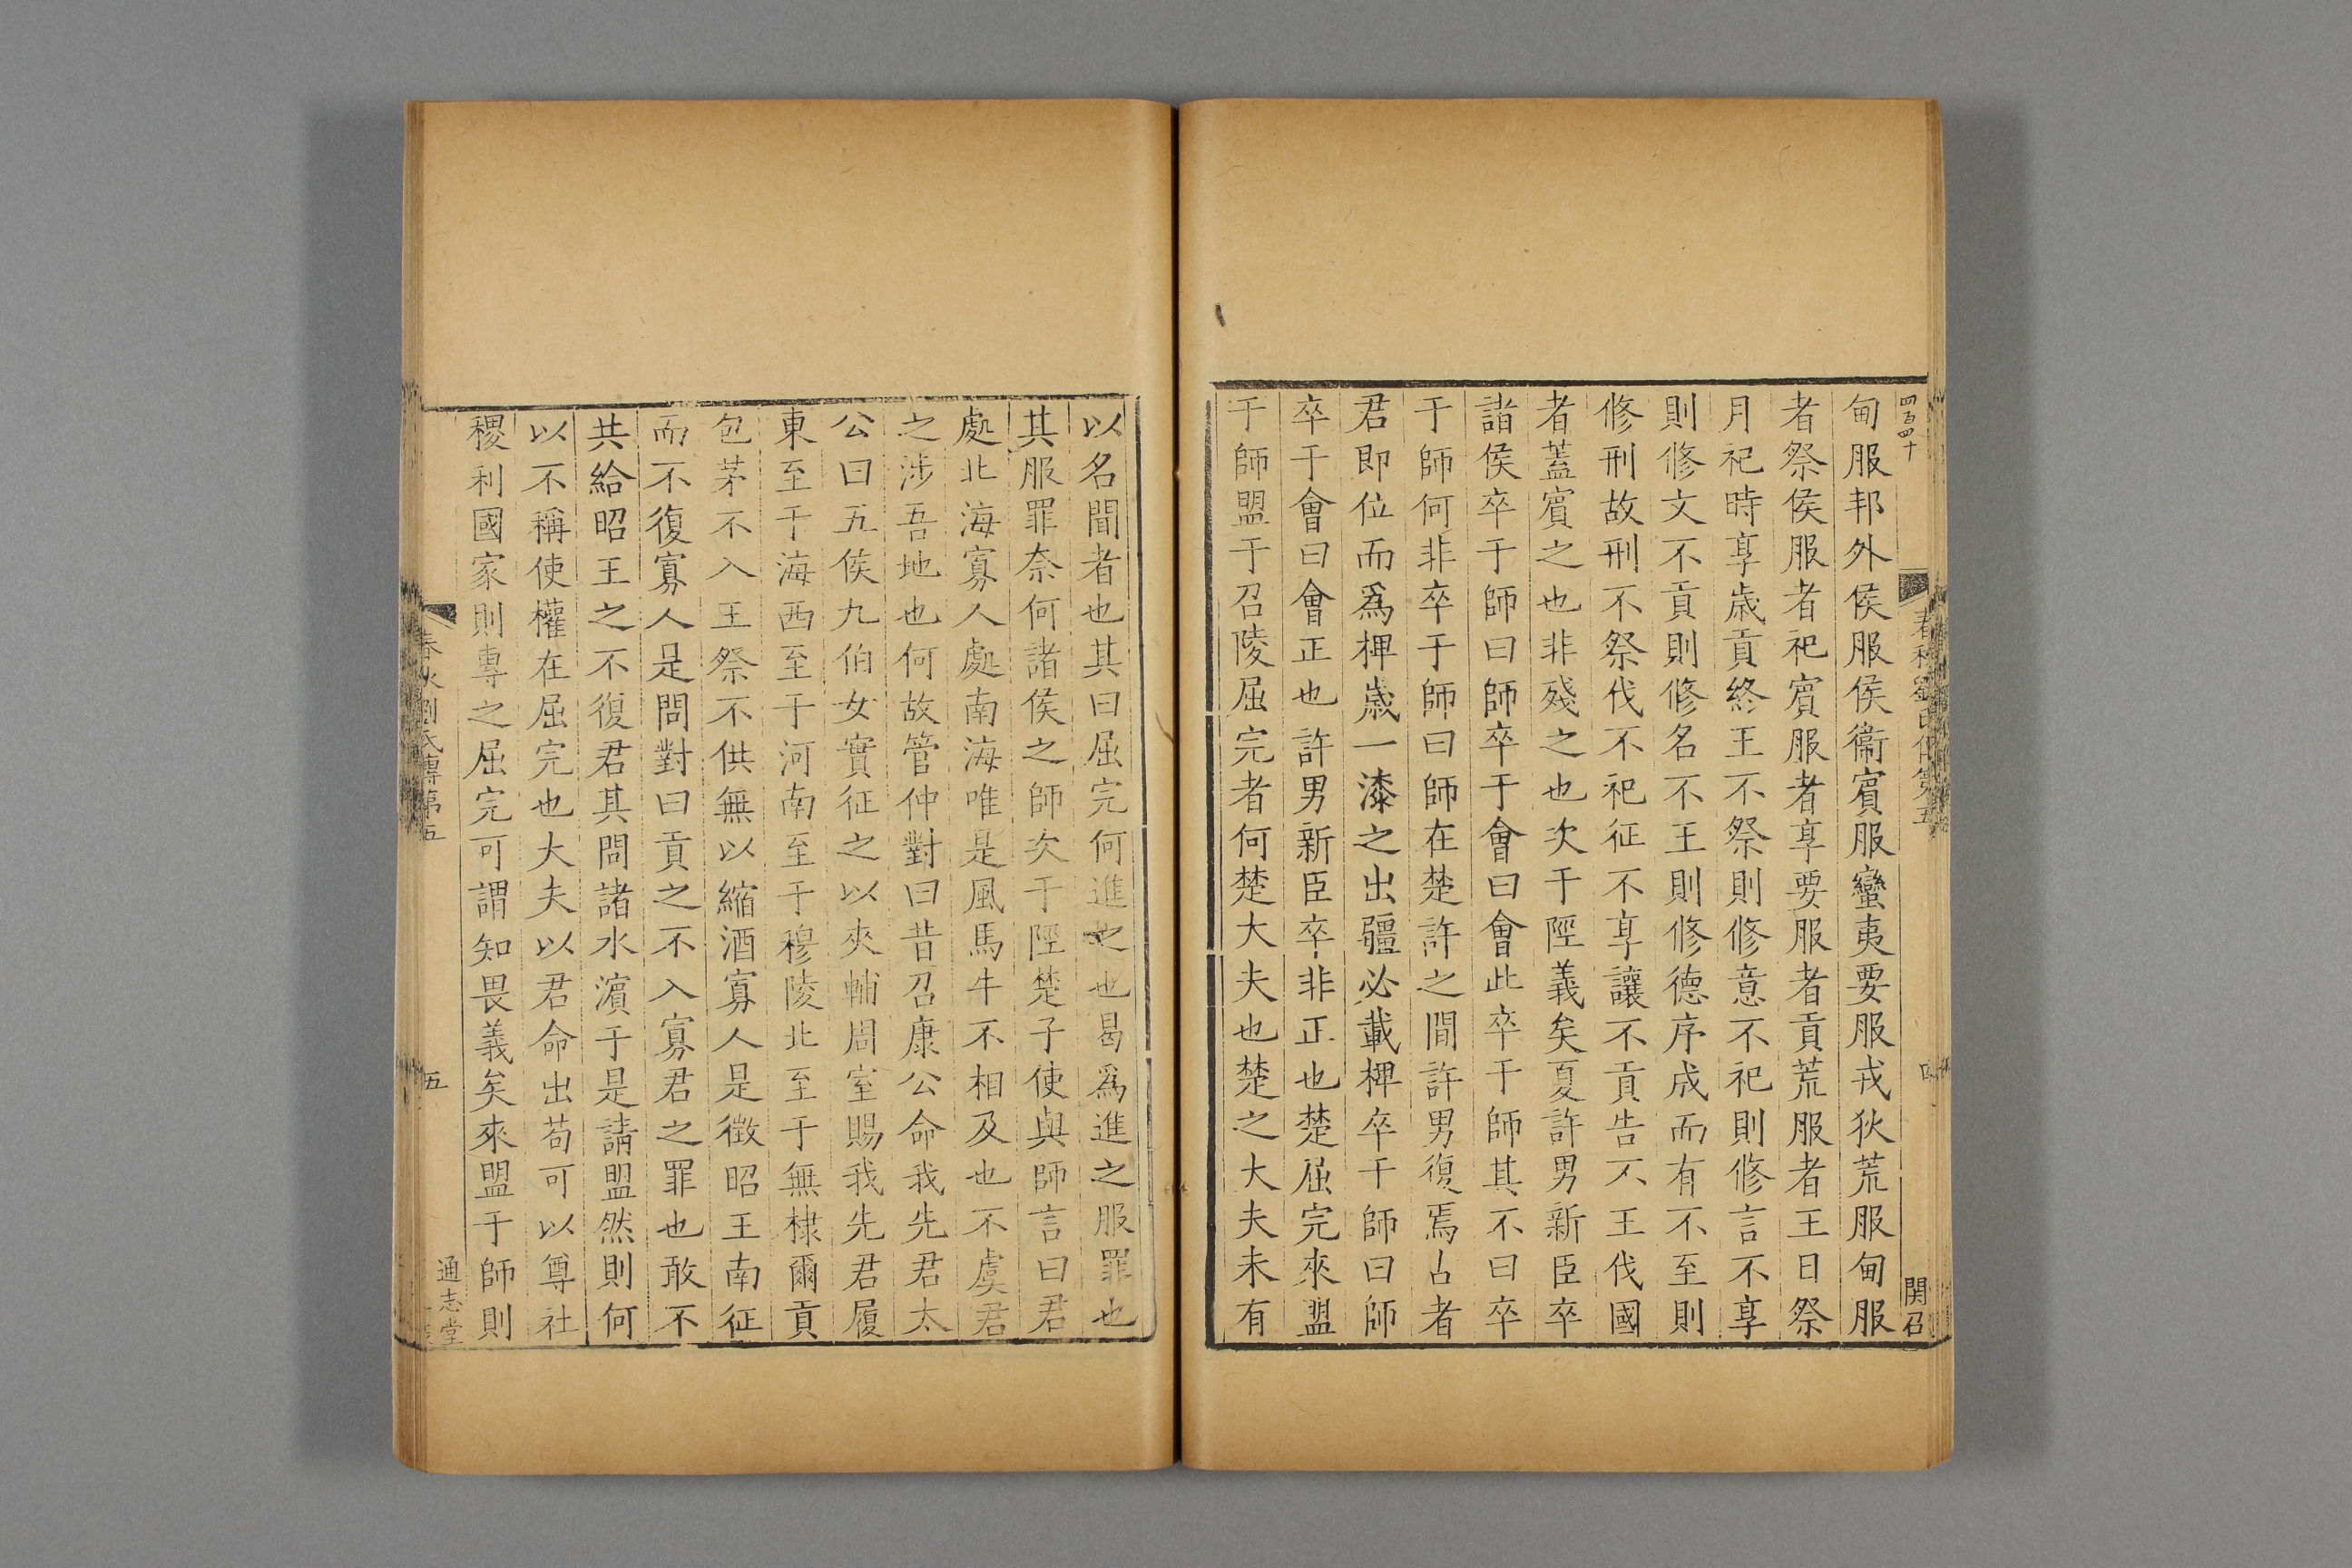 四百四十
春秋劉氏傳第五
四
関召
甸服邦外侯服侯衞賓服蠻夷要服戎狄荒服甸服
者祭侯服者祀賓服者享要服者貢荒服者王日祭
月祀時享歳貢終王不祭則修意不祀則修言不享
則修文不貢則修名不王則修德序成而有不至則
修刑故刑不祭伐不祀征不享讓不貢告不王伐國
者蓋賓之也非殘之也次于陘義矣夏許男新臣卒
諸侯卒于師曰師卒于會曰會此卒于師其不曰卒
于師何非卒于師曰師在楚許之間許男復焉古者
君即位而爲椑歳一漆之出疆必載椑卒于師曰師
卒于會曰會正也許男新臣卒非正也楚屈完來盟
于師盟于召陵屈完者何楚大夫也楚之大夫未有
以名聞者也其曰屈完何進之也曷爲進之服罪也
其服罪奈何諸侯之師次于陘楚子使與師言曰君
處北海寡人處南海唯是風馬牛不相及也不虞君
之涉吾地也何故管仲對曰昔召康公命我先君太
公曰五侯九伯女實征之以夾輔周室賜我先君履
東至于海西至于河南至于穆陵北至于無棣爾貢
包茅不入王祭不供無以縮酒寡人是徵昭王南征
而不復寡人是問對曰貢之不入寡君之罪也敢不
共給昭王之不復君其問諸水濱于是請盟然則何
以不稱使權在屈完也大夫以君命出苟可以尊社
稷利國家則專之屈完可謂知畏義矣來盟于師則
春秋劉氏傳第五
五
通志堂